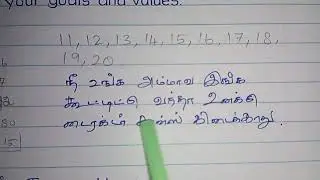 your goals and values.
11, 12, 13, 14, 15, 16, 17, 18,
19, 20
நீ உங்க அம்மாவ இங்க
கூட்டிட்டு வந்தா உனக்கு
டைரக்டர் சான்ஸ் கிடைக்காது.
15